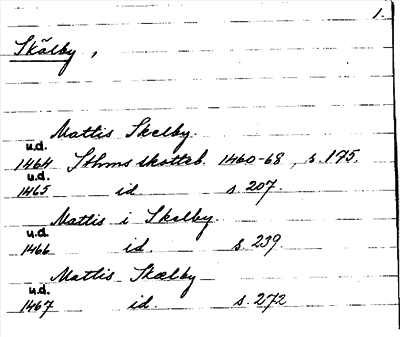 1.
Skälby,
Mattis Skelby.
u.d.
1464 Sthms skotteb. 1460-68, s. 175.
u.d.
1465 id. s. 207.
Mattis i Skelby.
u.d.
1466 id. s. 239.
Mattis Skælby
u.d.
1467 id. s. 272